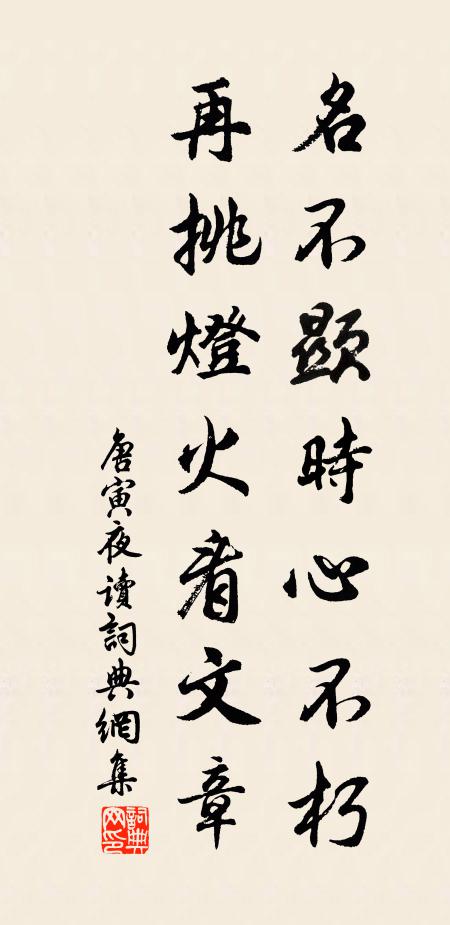 名不顯時心不朽
再挑燈火看文章
唐寅夜讀詞典網集
詞典网印